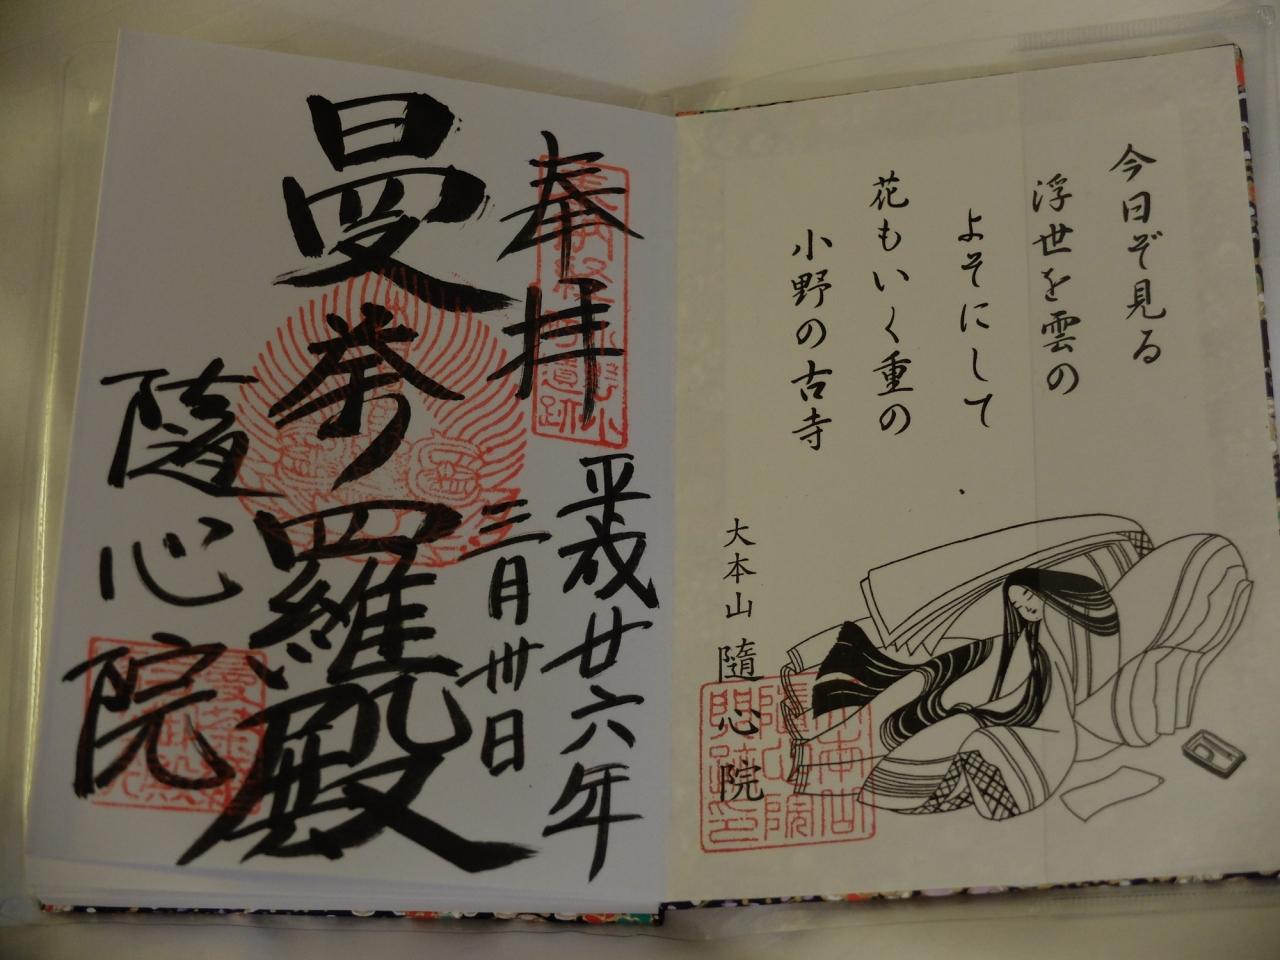 今日ぞ見る
浮世を雲の
よそにして
花もいく重の
小野の古寺
大本山 隨心院
奉拝
平成廿六年
三月卅日
曼荼羅殿
隨心院